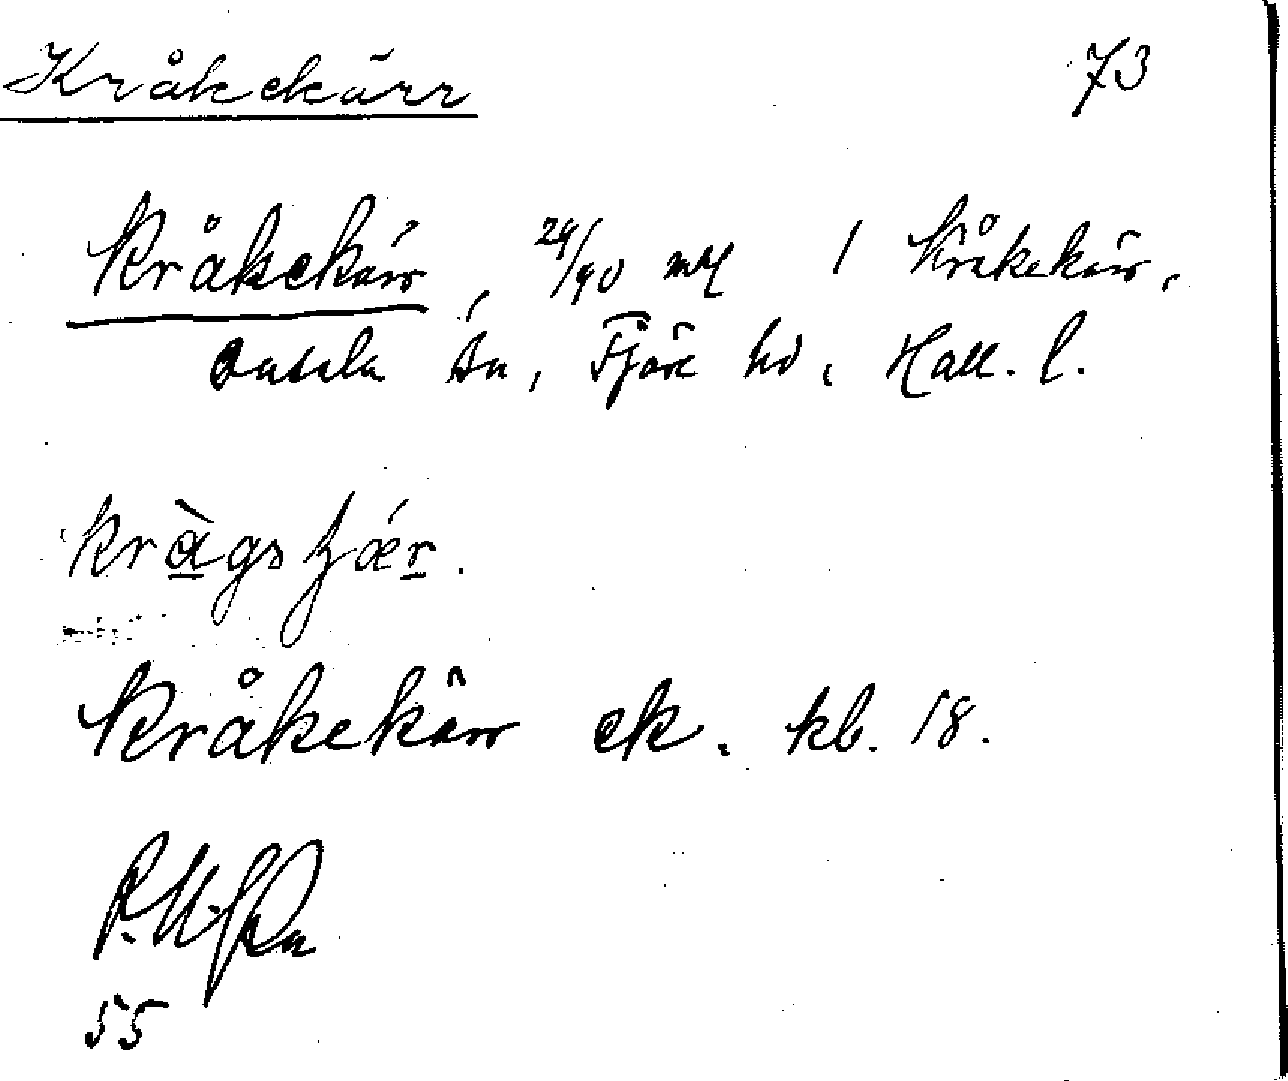 Kråkekärr 73
Kråkekärr, 24/90 mtl 1 Kråkekärr,
Onsala sn, Fjäre hd, Hall. l.
kràgsháer.
Kråkekärr ek. kb. 18.
55